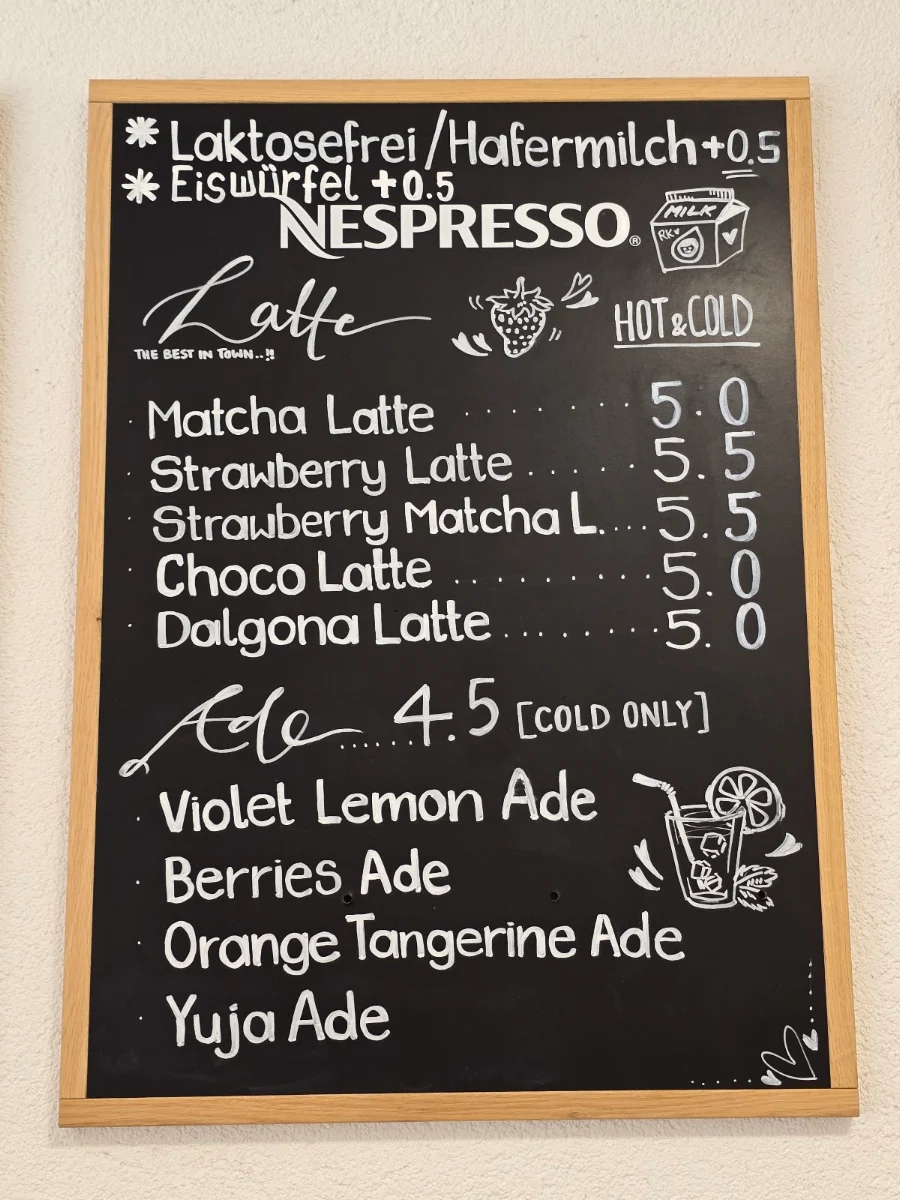 * Laktosefrei/Hafermilch +0.5
* Eiswürfel +0.5
NESPRESSO®
MILK
RK
Latte
THE BEST IN TOWN..!!
HOT & COLD
· Matcha Latte ...... 5.0
· Strawberry Latte ...... 5.5
· Strawberry Matcha L.... 5.5
· Choco Latte .......... 5.0
· Dalgona Latte ........ 5.0
Ade ...... 4.5 [COLD ONLY]
· Violet Lemon Ade
· Berries Ade
· Orange Tangerine Ade
· Yuja Ade